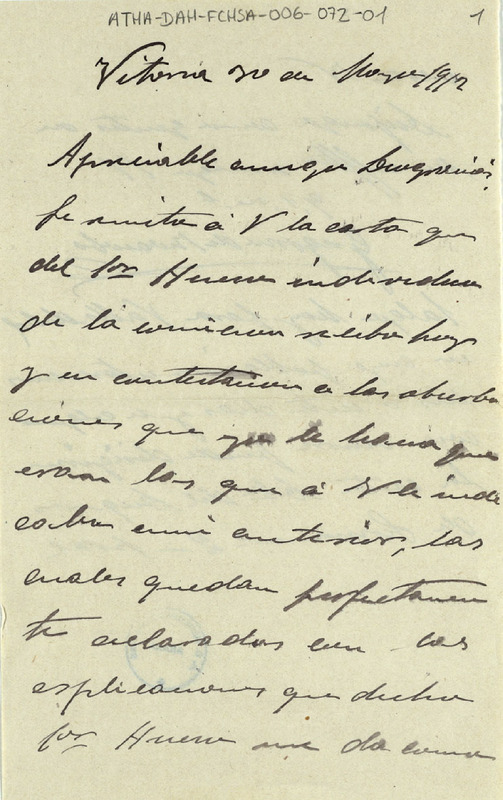 ATHA-DAH-FCHSA-006-072-01 1
Vitoria 30 de Mayo 1912
Apreciable amigo Deogracias,
Le remito á V la carta que
del Sor Hueso individuo
de la comicion recibo hoy
y en contestacion a las obserba
ciones que yo le hacia que
eran las que á V le indi
caba en mi anterior, las
cuales quedan perfectamen
te aclarados con las
esplicaciones que dicho
Sor Hueso me da como